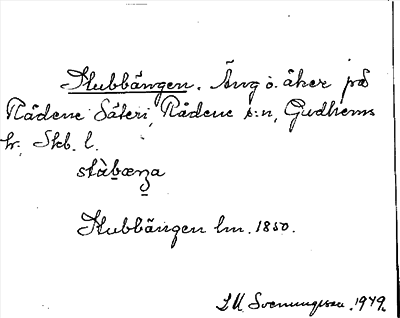 Stubbängen. Äng o. åker på
Rådene Säteri, Rådene s:n, Gudhems
hr, Skb. l.
stàbæŋa
Stubbängen lm. 1850.
Svenungsson. 1949.